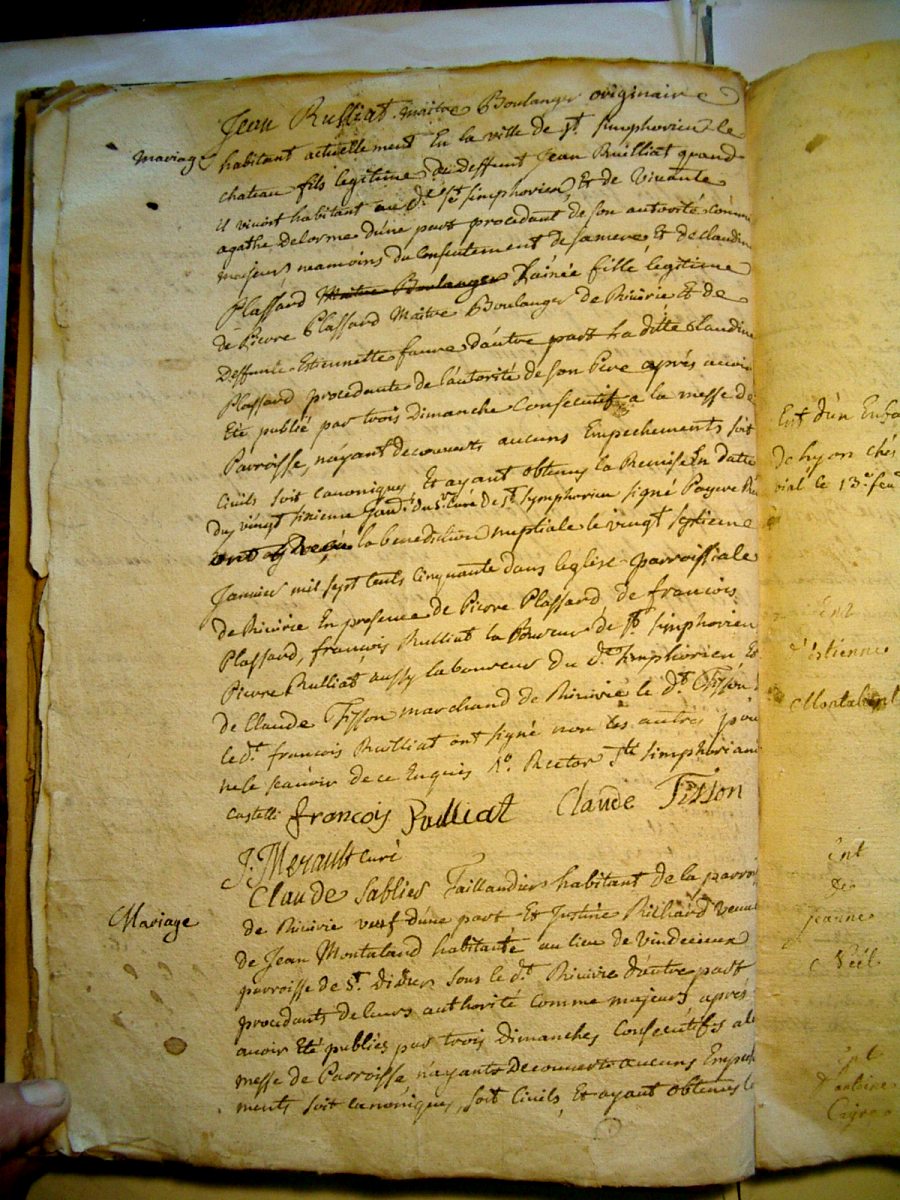 Mariage
Jean Rulliat maitre Boulanger originaire
habitant actuellement En la ville de St. Simphorien le
chateau fils legitime de deffunt Jean Rulliat quand
il vivoit habitant au d. St Simphorien, Et de vivante
agathe Delorme d'une part procedant de son autorité comme
majeur neamoins du Consentement de sa mere Et de Claudine
Plassard Maitre Boulanger L'ainée fille legitime
de Pierre Plassard Maitre Boulanger de Riverie Et de
Deffunte Estiennette faure d'autre part La ditte Claudine
Plassard procedante de l'autorité de son Pere après avoir
Eté publié par trois Dimanche Consecutif a la messe de
Parroisse, n'ayant decouverts aucuns Empechements soit
Civils soit canoniques Et ayant obtenus la Remise En datte
du vingt sixieme Janv. du Sr. Curé de St. Symphorien signé
la benediction nuptiale le vingt septieme
Janvier mil sept cents Cinquante dans leglise parroissiale
de Riverie En presence de Pierre Plassard, de francois
Plassard, francois Rulliat laboureur de St. Simphorien
Pierre Rulliat aussy laboureur du d. St. Simphorien Et
de Claude Tisson marchand de Riverie le d. Tisson
le d. francois Rulliat ont signé non les autres pour
ne le scavoir de ce Enquis Rector Sti Simphoriani
Castelli francois Rulliat Claude Tisson
J. Merault curé
Mariage
Claude Sablier Taillandier habitant de la parroi
de Riverie veuf d'une part Et Justine Rilliard veuve
de Jean Montaland habitante au lieu de
parroisse de St. Didier sous le d. Riverie d'autre part
procedants de leurs authorité comme majeurs après
avoir Eté publiés par trois Dimanches Consecutifs a la
messe de Parroisse n'ayants Decouverts aucuns Empeche
ments soit canoniques, soit Civils, Et ayant obtenus le
Ent d'un Enfa
de lyon
le 13e feu
Ent
d'Estienne
Montaland
Ent
de
Jeanne
Ent